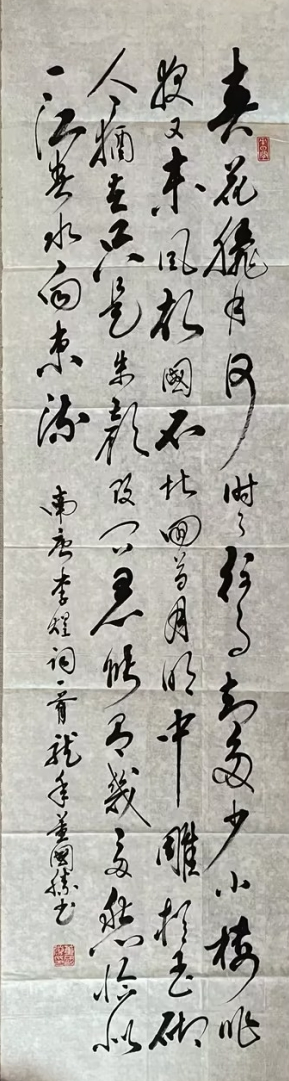 春花秋月何时了往事知多少小楼昨
夜又东风故國不堪回首月明中雕栏玉砌
应猶在只是朱颜改问君能有幾多愁恰似
一江春水向东流 南唐李煜词一首龙年董國胜书